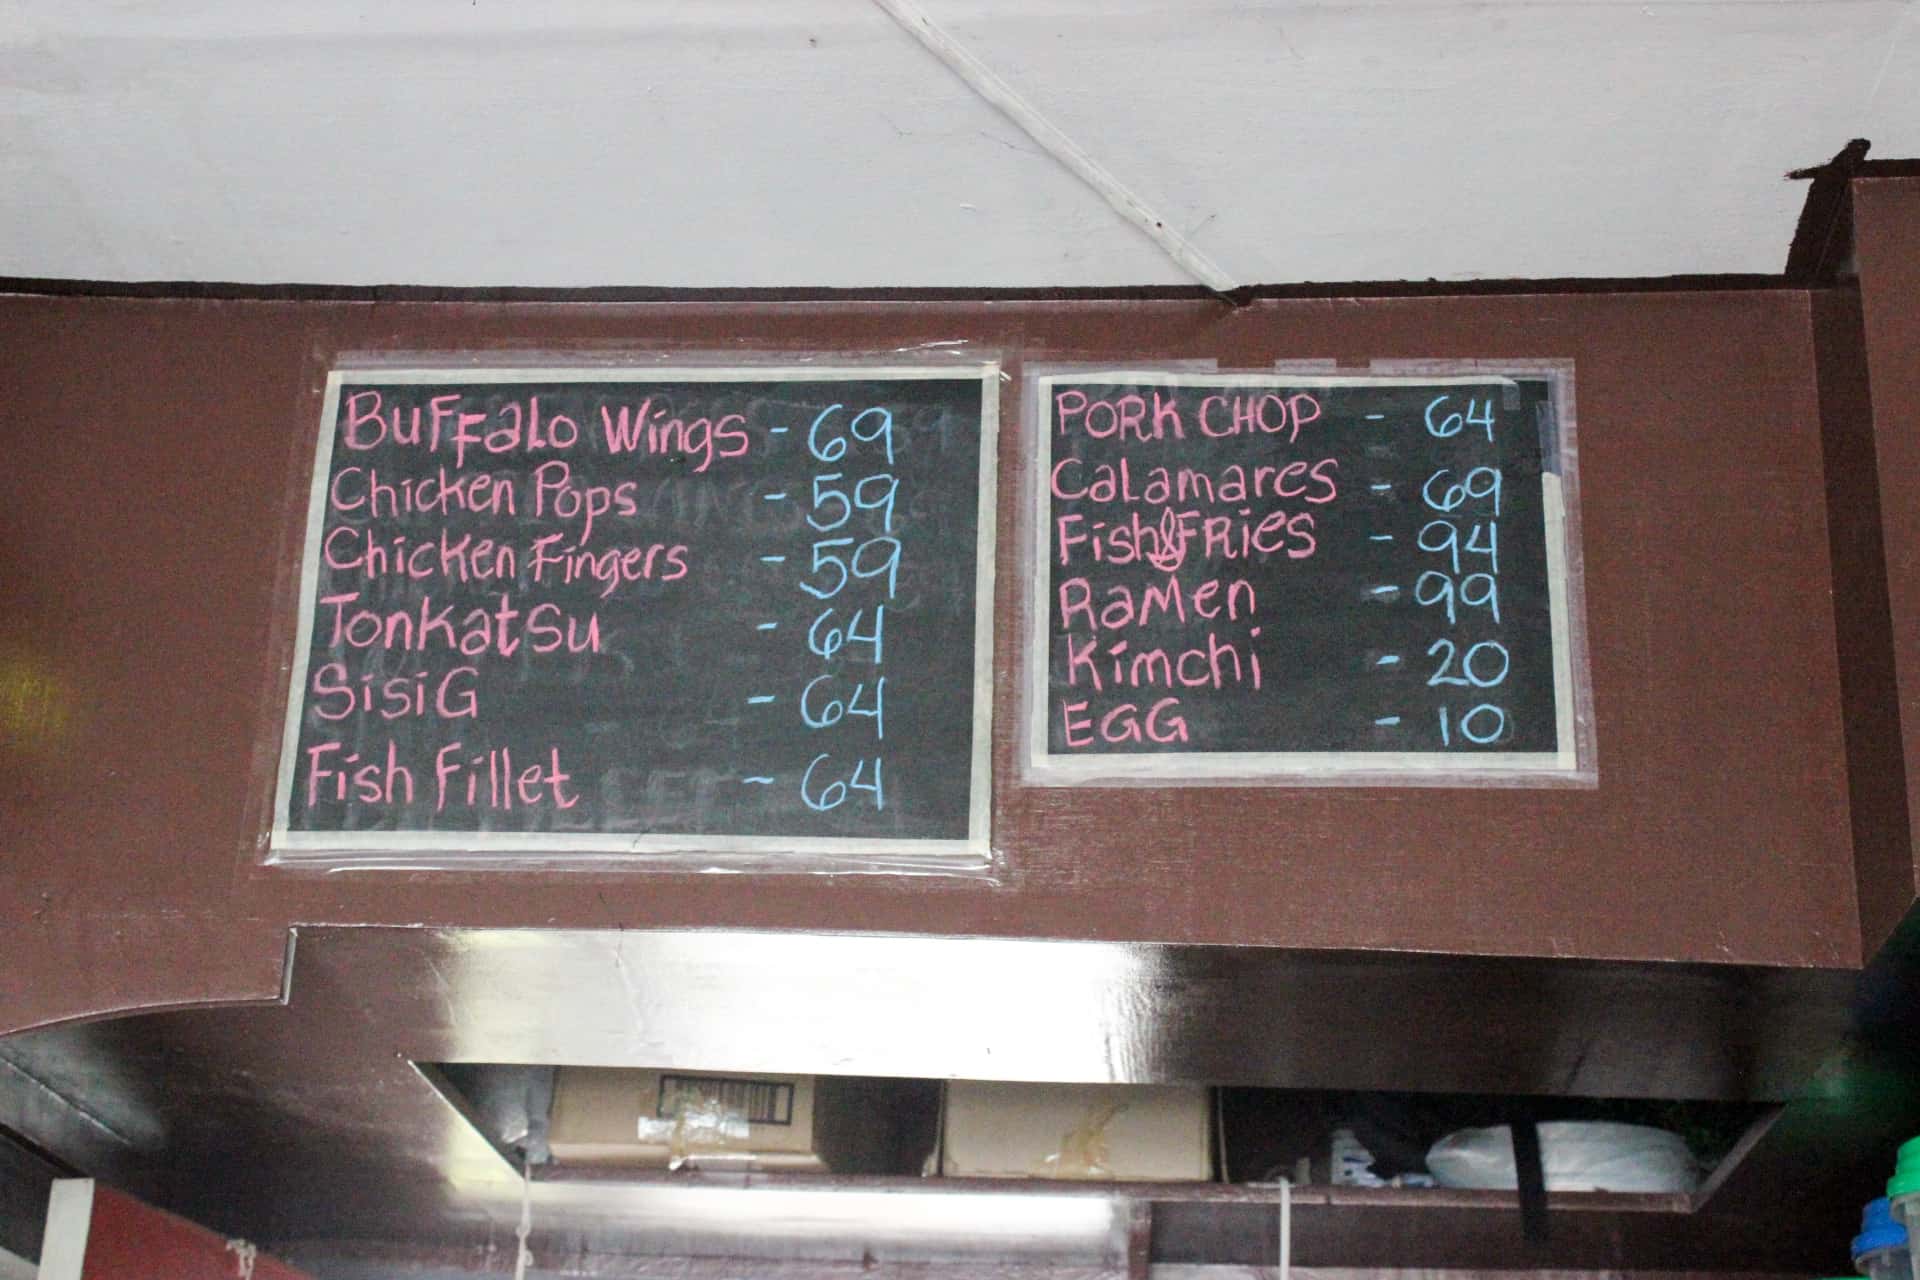 Buffalo Wings - 69
Chicken Pops - 59
Chicken Fingers - 59
Tonkatsu - 64
SisiG - 64
Fish Fillet - 64
PORK CHOP - 64
Calamares - 69
Fish&FRies - 94
Ramen - 99
Kimchi - 20
EGG - 10